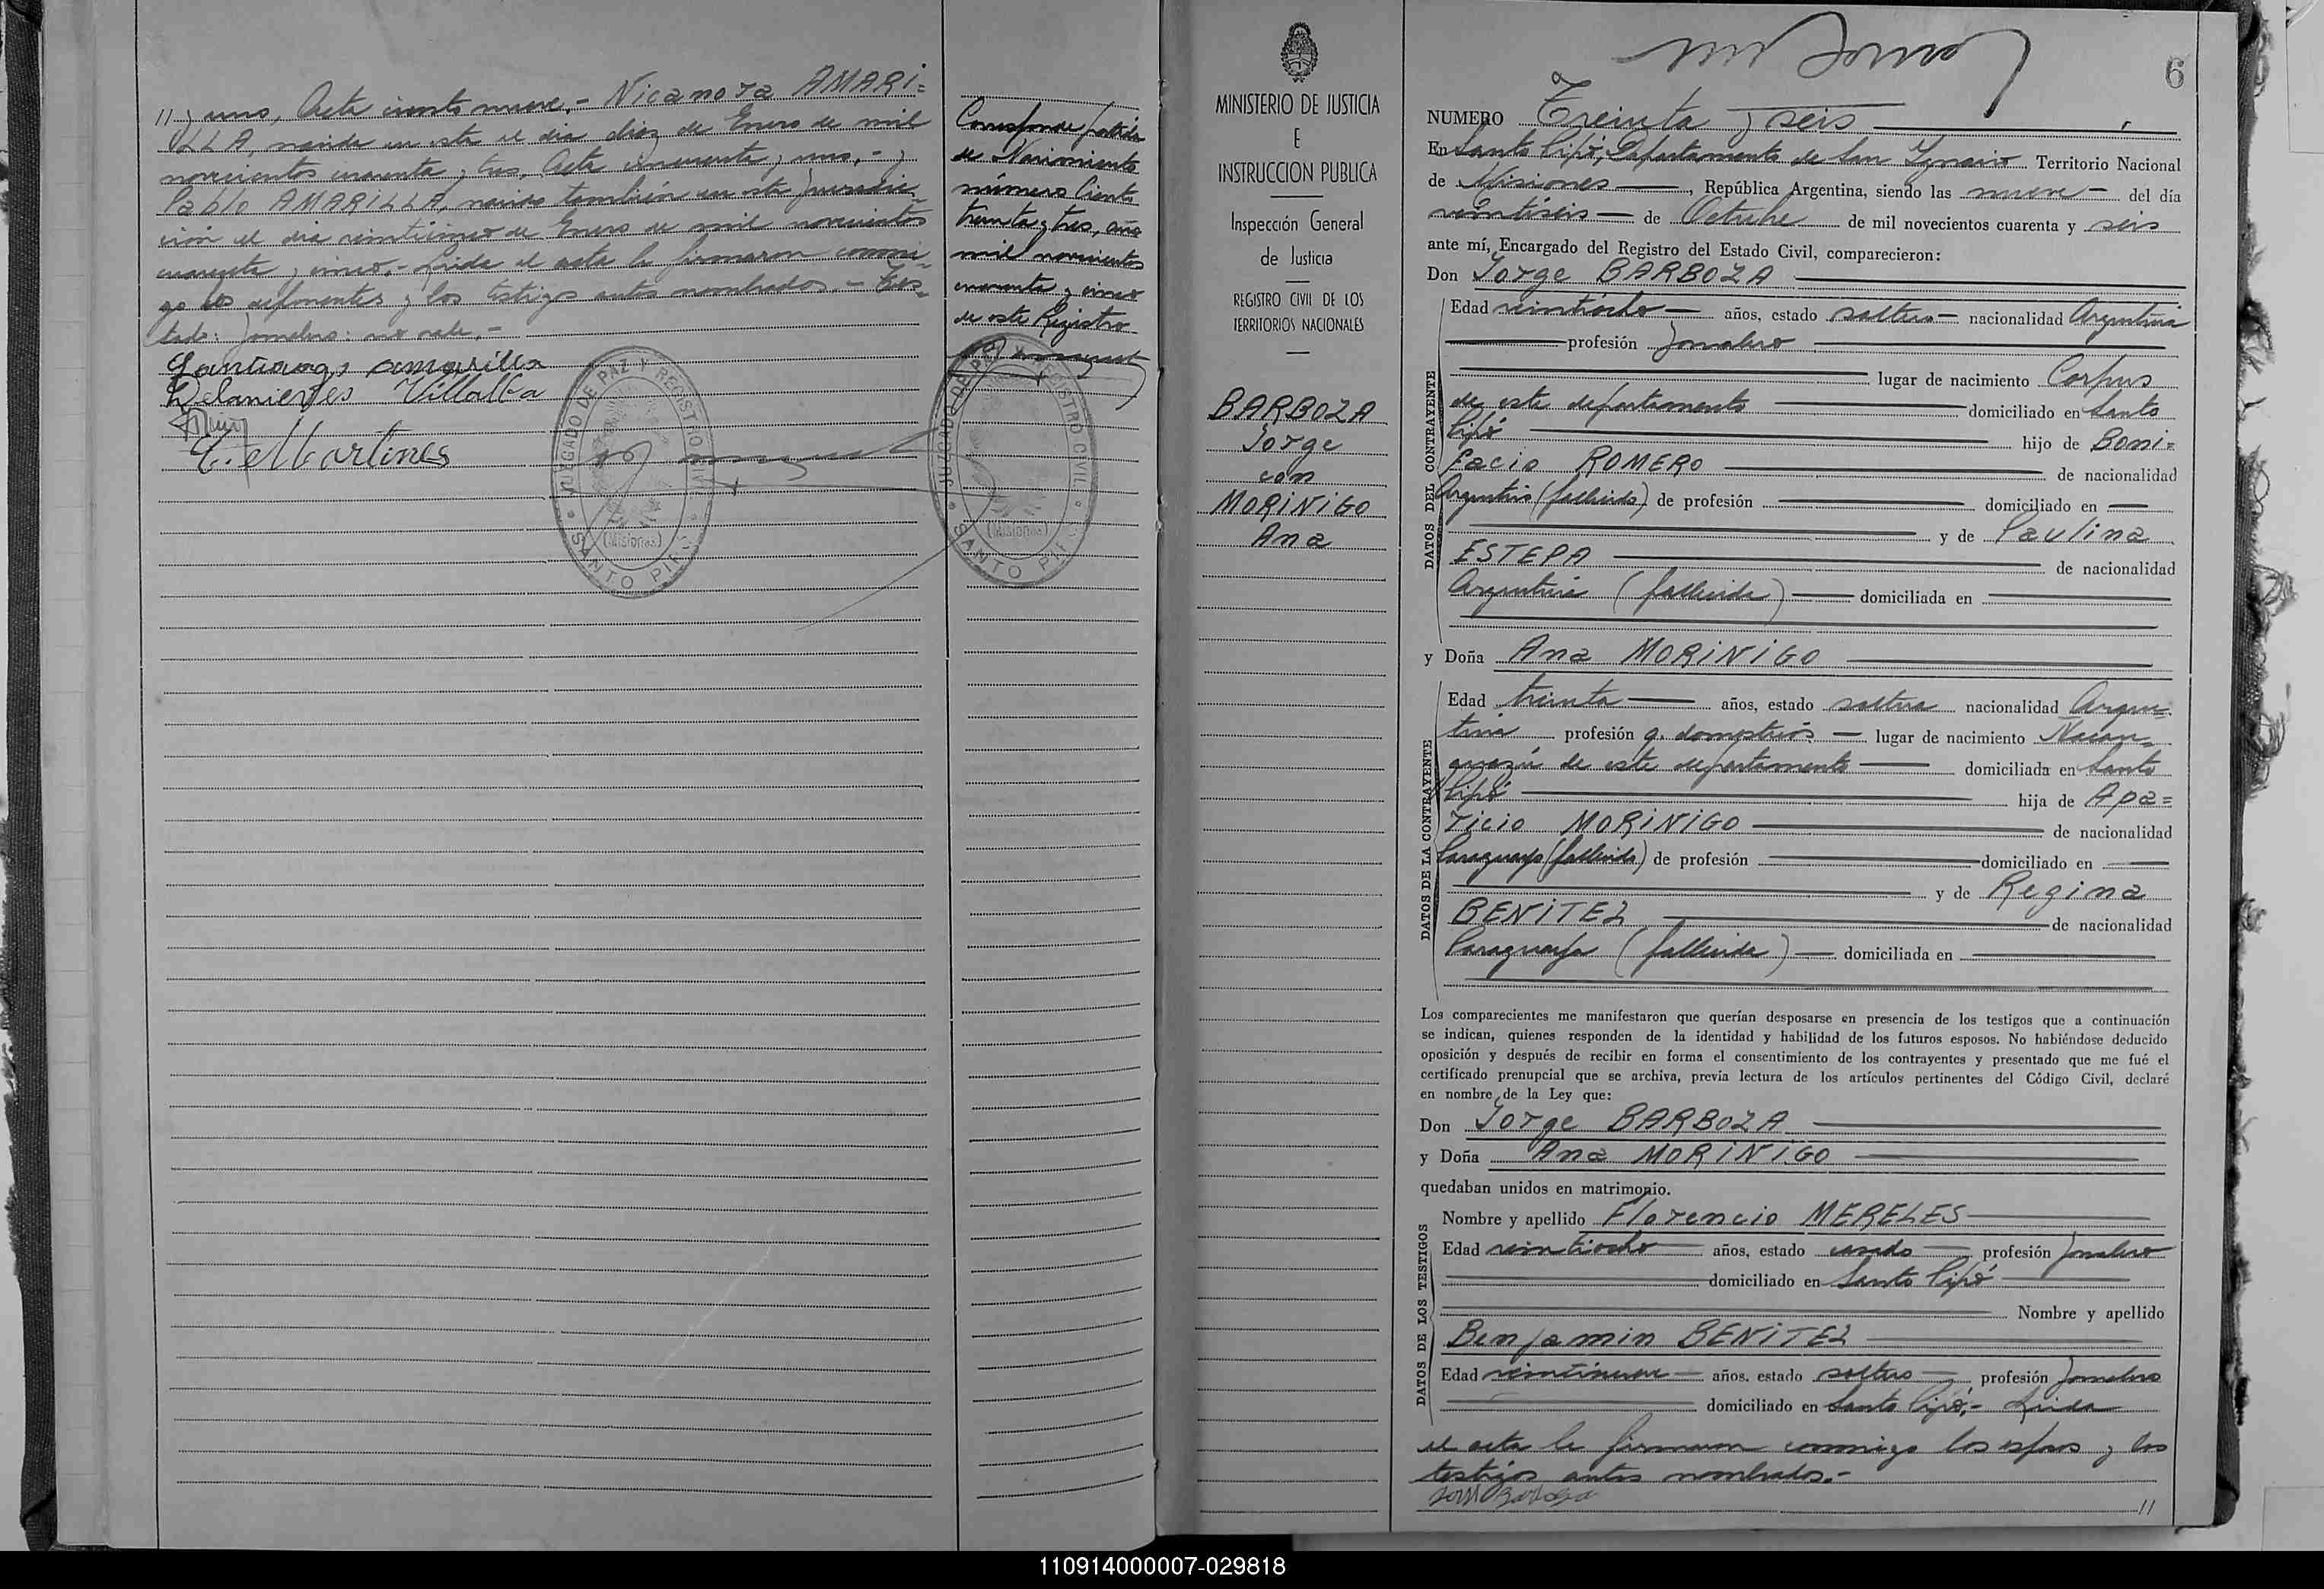 // y uno, Acta ciento nueve.- Nicanora AMARI=
LLA, nacida en esta el día diez de Enero de mil
novecientos cuarenta y tres, Acta cincuenta y uno,- y
Pablo AMARILLA, nacido también en esta jurisdic-
ción el día veinticinco de Enero de mil novecientos
cuarenta y cinco.- Leída el acta la firmaron conmi-
go los deponentes y los testigos antes nombrados.- Tes-
tado: Jornalero: no vale.-
Santiago amarilla
Delanieves Villalba
T. el Martines
JUZGADO DE PAZ Y REGISTRO CIVIL
(Misiones)
SANTO PIPÓ
Corresponde partida
de Nacimiento
número Ciento
treinta y tres, año
mil novecientos
cuarenta y cinco
de este Registro
JUZGADO DE PAZ Y REGISTRO CIVIL
(Misiones)
SANTO PIPÓ
MINISTERIO DE JUSTICIA
E
INSTRUCCION PUBLICA
Inspección General
de Justicia
REGISTRO CIVIL DE LOS
TERRITORIOS NACIONALES
BARBOZA
Jorge
con
MORINIGO
Ana
6
NUMERO Treinta y seis
En Santo Pipó, Departamento de San Ignacio Territorio Nacional
de Misiones, República Argentina, siendo las nueve del día
veintiseis de Octubre de mil novecientos cuarenta y seis
ante mí, Encargado del Registro del Estado Civil, comparecieron:
Don Jorge BARBOZA
DATOS DEL CONTRAYENTE
Edad veintiocho años, estado soltero nacionalidad Argentina
profesión Jornalero
lugar de nacimiento Corpus
de este departamento domiciliado en Santo
Pipó hijo de Boni=
facio ROMERO de nacionalidad
Argentino (fallecido) de profesión domiciliado en
y de Paulina
ESTEPA de nacionalidad
Argentina (fallecida) domiciliada en
y Doña Ana MORINIGO
DATOS DE LA CONTRAYENTE
Edad treinta años, estado soltera nacionalidad Argen-
tina profesión q. domésticos lugar de nacimiento Ñacan-
guazú de este departamento domiciliada en Santo
Pipó hija de Apa=
ricio MORINIGO de nacionalidad
Paraguayo (fallecido) de profesión domiciliado en
y de Regina
BENITEZ de nacionalidad
Paraguaya (fallecida) domiciliada en
Los comparecientes me manifestaron que querían desposarse en presencia de los testigos que a continuación
se indican, quienes responden de la identidad y habilidad de los futuros esposos. No habiéndose deducido
oposición y después de recibir en forma el consentimiento de los contrayentes y presentado que me fué el
certificado prenupcial que se archiva, previa lectura de los artículos pertinentes del Código Civil, declaré
en nombre de la Ley que:
Don Jorge BARBOZA
y Doña Ana MORINIGO
quedaban unidos en matrimonio.
DATOS DE LOS TESTIGOS
Nombre y apellido Florencio MERELES
Edad veintiocho años, estado casado profesión Jornalero
domiciliado en Santo Pipó
Nombre y apellido
Benjamin BENITEZ
Edad veintinueve años. estado soltero profesión Jornalero
domiciliado en Santo Pipó.- Leída
el acta la firmaron conmigo los esposos y los
testigos antes nombrados.-
//
110914000007-029818